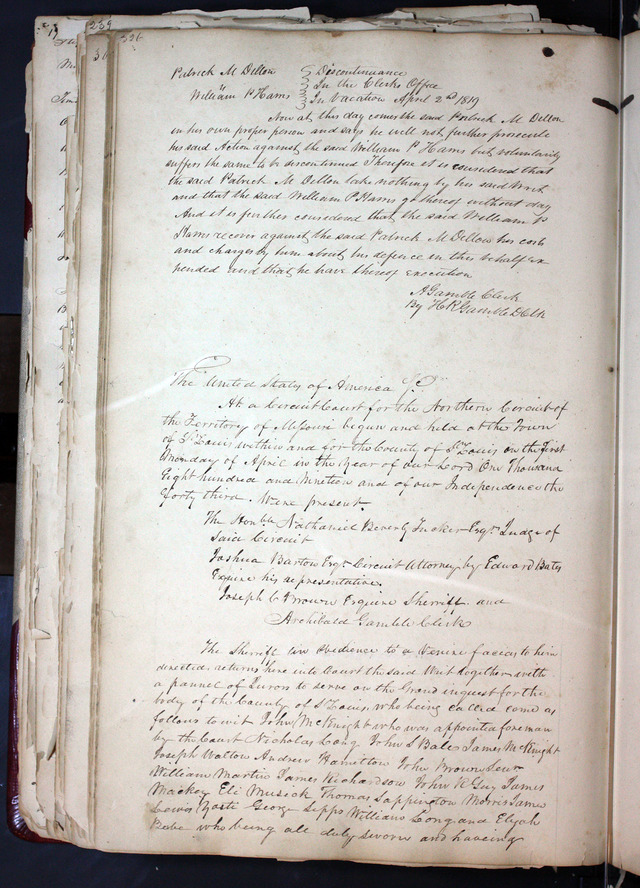 239
326
Patrick M Dillon } Discontinuance
vs } In the Clerks Office
William P Harris } In Vacation April 2nd 1819
Now at this day comes the said Patrick M Dillon
in his own proper person and says he will not further prosecute
his said Action against the said William P Harris but voluntarily
suffers the same to be discontinued Therefore it is considered that
the said Patrick M Dillon take nothing by his said Writ
and that the said William P Harris go thereof without day
And it is further considered that the said William P
Harris recover against the said Patrick M Dillon his costs
and charges by him about his defence in this behalf ex
pended and that he have thereof execution
A Gamble Clerk
By H R Gamble D Clk
The United States of America
At a Circuit Court for the Northern Circuit of
the Territory of Missouri begun and held at the Town
of St Louis within and for the County of St Louis on the first
Monday of April in the Year of our Lord One Thousand
Eight hundred and Nineteen and of our Independence the
forty third. Were present.
The Honble Nathaniel Beverly Tucker Esqr Judge of
said Circuit
Joshua Barton Esqr Circuit Attorney by Edward Bates
Esquire his representative
Joseph C Brown Esquire Sherriff and
Archibald Gamble Clerk
The Sheriff in obedience to a Venire facias to him
directed returns here into Court the said Writ together with
a pannel of Jurors to serve on the Grand inquest for the
body of the County of St Louis, who being called come as
follows to wit John McKnight who was appointed foreman
by the Court Nicholas Long John S Bales James McKnight
Joseph Walton Andrew Hamilton John Brown Senr
William Martin James Richardson John K Guy James
Mackey Eli Musick Thomas Sappington Morris James
Lewis George Sipps William Long and Elijah
who being all duly sworn and having